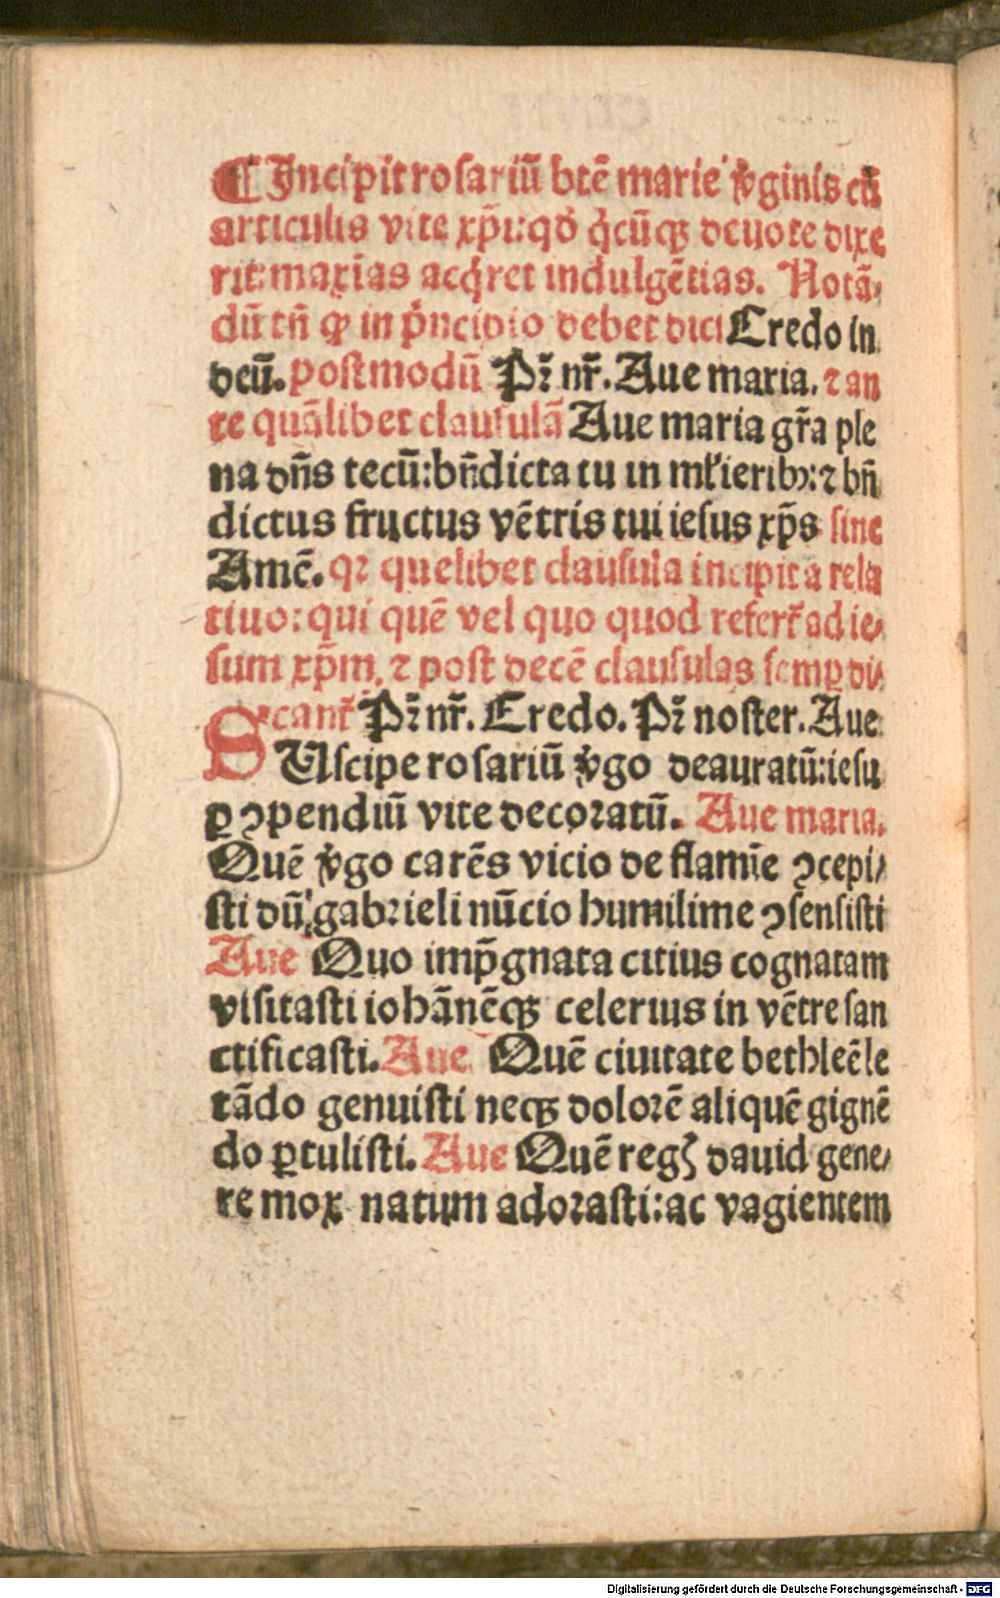 ¶ Incipit rosariū btē marie v̓ginis cū
articulis vite xp̄i: qd̓ q̓cūqꝫ deuote dixe
rit: maxīas acq̓ret indulgētias. Notā⸗
dū tn̄ ꝙ in p̓ncipio debet dici Credo in
deū. postmodū Pr̄ nr̄. Aue maria. ⁊ an
te quālibet clausulā Aue maria gr̄a ple
na dn̄s tecū: bn̄dicta tu in ml̓ieribꝫ: ⁊ bn̄
dictus fructus vētris tui iesus xp̄s sine
Amē. qꝛ quelibet clausula incipit a rela
tiuo: qui quē vel quo quod refert̓ ad ie⸗
sum xp̄m, ⁊ post decē clausulas semꝑ di⸗
cant̓ Pr̄ nr̄. Credo. Pr̄ noster. Aue
SUscipe rosariū v̓go deauratū: iesu
ꝑ ꝯpendiū vite decoꝛatū. Aue maria.
Quē v̓go carēs vicio de flamīe ꝯcepi⸗
sti dū gabꝛieli nūcio humilime ꝯsensisti
Aue Quo imp̄gnata citius cognatam
visitasti iohānēqꝫ celerius in vētre san
ctificasti. Aue Quē ciuitate bethleē le
tādo genuisti neqꝫ doloꝛē aliquē gignē
do ꝑtulisti. Aue Quē regꝭ dauid gene⸗
re mox natum adoꝛasti: ac vagientem
Digitalisierung gefördert durch die Deutsche Forschungsgemeinschaft - DFG